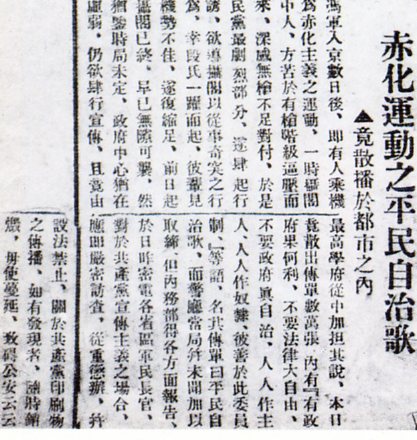 赤化運動之平民自治歌
▲竟散播於都市之內
馮軍入京數日後、卽有人乘機
爲赤化主義之運動、一時
中人、方苦於有槍階級逼壓而
來、深感無槍不足對付、於是
民黨最劇烈部分、遂肆起行
誘、欲導以從事奇突之行
爲、幸段氏一躍而起、彼輩見
機勢不佳、遂復縮足、前日起
攝閣已終、早已無隙可襲、然
猶時局未定、政府中心猶在
虛弱、仍欲肆行宣傳、且竟由
最高學府從中加担其說、本日
竟散出傳單數萬張、內有『有政
府果何利、不要法律大自由、
不要政府眞自治、人人作主
人人人作奴隸、彼善於此委員
制』等語、名其傳單曰平民自
治歌、而警廳當局尙未開加以
取締、但內務部得各方面報告、
於日昨密電各省區軍民長官、
對於共產黨宣傳主義之場合、
應卽嚴密訪查、從重懲辦、幷
設法禁止、關於共產黨印刷物
之傳播、如有發現者、隨時銷
燬、毋使蔓延、致碍公安云云